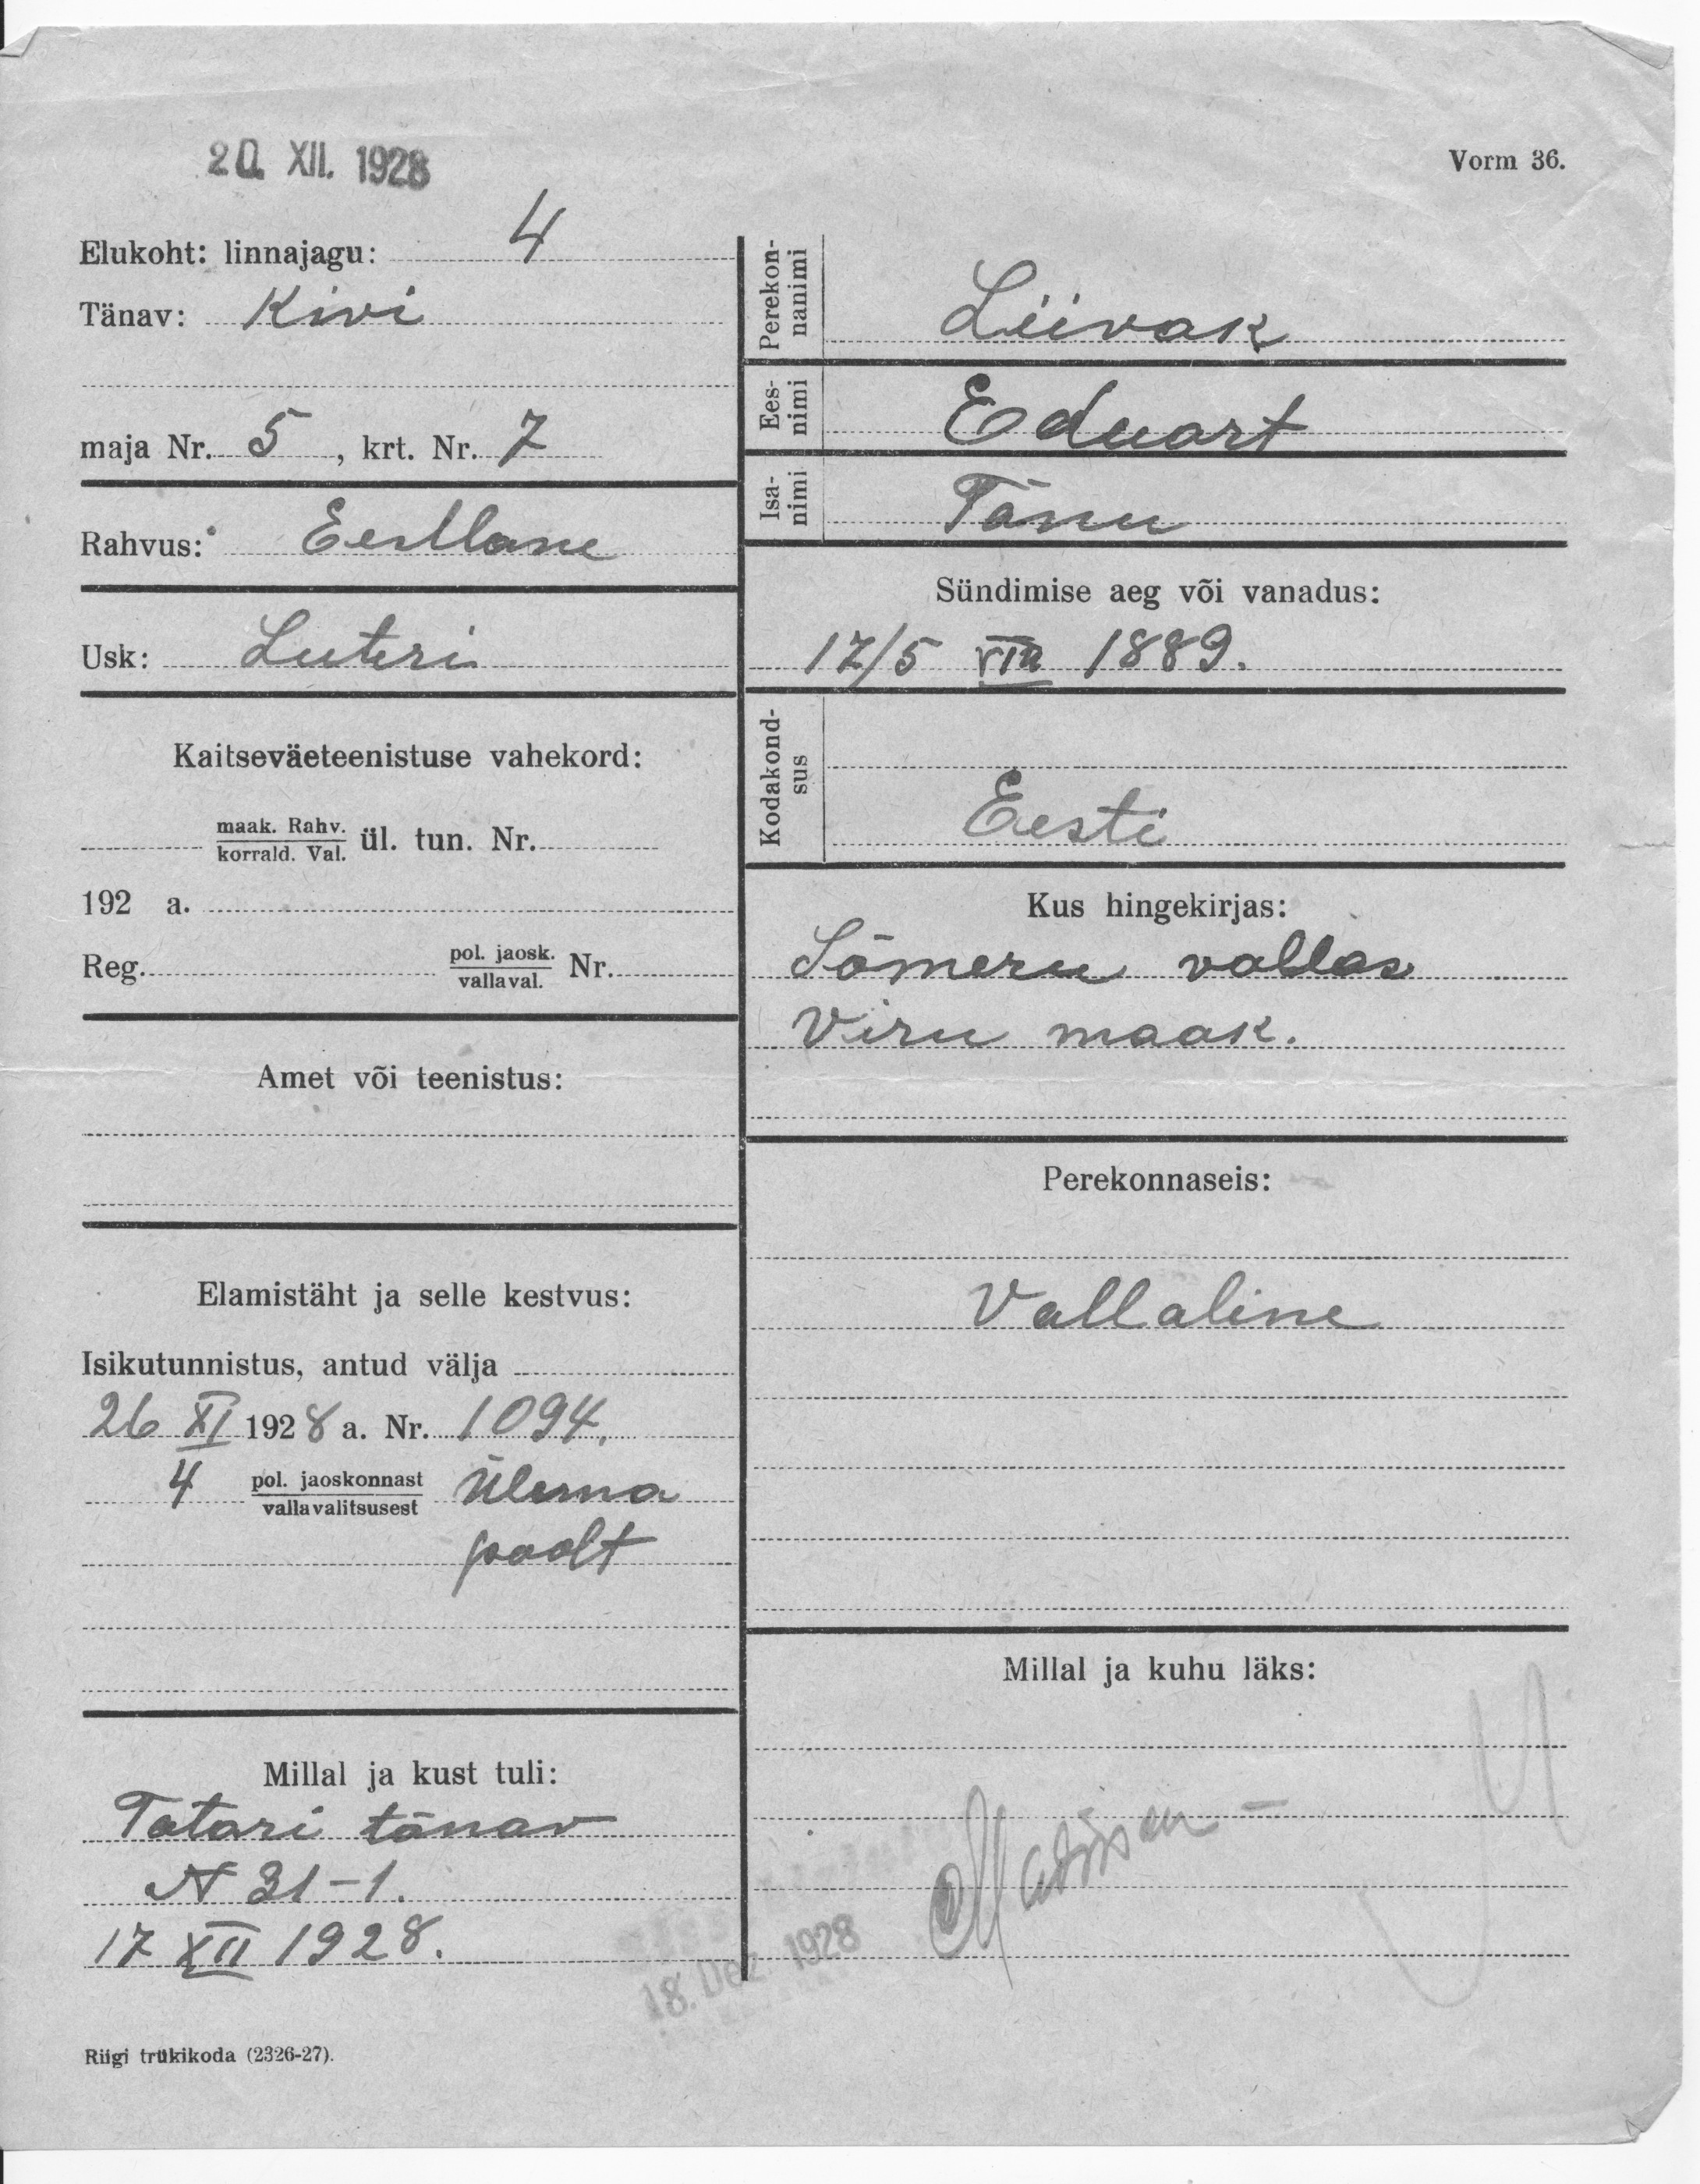 20. XII. 1928
Vorm 36.
Elukoht: linnajagu: 4
Tänav: Kivi
maja Nr. 5, krt. Nr. 7
Rahvus: Eestlane
Usk: Luteri
Kaitseväeteenistuse vahekord:
maak. Rahv.
korrald. Val.
ül. tun. Nr.
192 a.
Reg. pol. jaosk. Nr.
vallaval.
Amet või teenistus:
Elamistäht ja selle kestvus:
Isikutunnistus, antud välja
26 XI 1928 a. Nr. 1094.
4 pol. jaoskonnast Ülema
vallavalitsusest
poolt
Millal ja kust tuli:
Tatari tänav
N 31-1.
17 XII 1928.
Riigi trükikoda (2326-27).
Perekon-
nanimi
Liivak
Ees-
nimi
Eduart
Isa-
nimi
Tõnu
Sündimise aeg või vanadus:
17/5 VIII 1889.
Kodakond-
sus
Eesti
Kus hingekirjas:
Sõmeru vallas
Viru maak.
Perekonnaseis:
Vallaline
Millal ja kuhu läks:
18. Dez. 1928